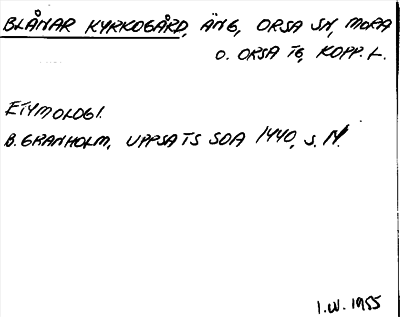 BLÅNAR KYRKOGÅRD, ÄNG, ORSA SN, MORA
O. ORSA TG, KOPP. L.
ETYMOLOGI.
B. GRANHOLM, UPPSATS SOA 1440, S.
1955